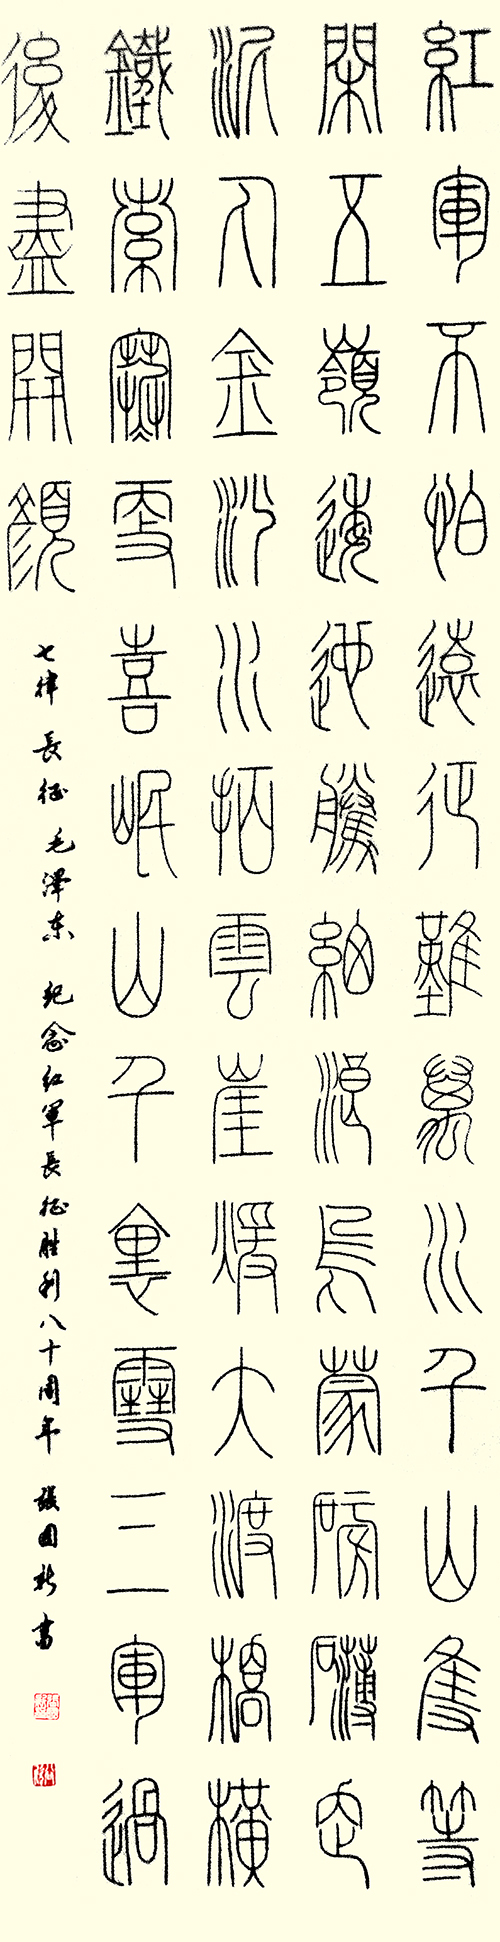 紅軍不怕遠征難萬水千山隻等
閑五嶺逶迤騰細浪烏蒙磅礴走
泥丸金沙水拍雲崖煖大渡橋橫
鐵索寒更喜岷山千裏雪三軍過
後盡開顏
七律 長征 毛澤东 紀念红軍長征胜利八十周年 張国新書